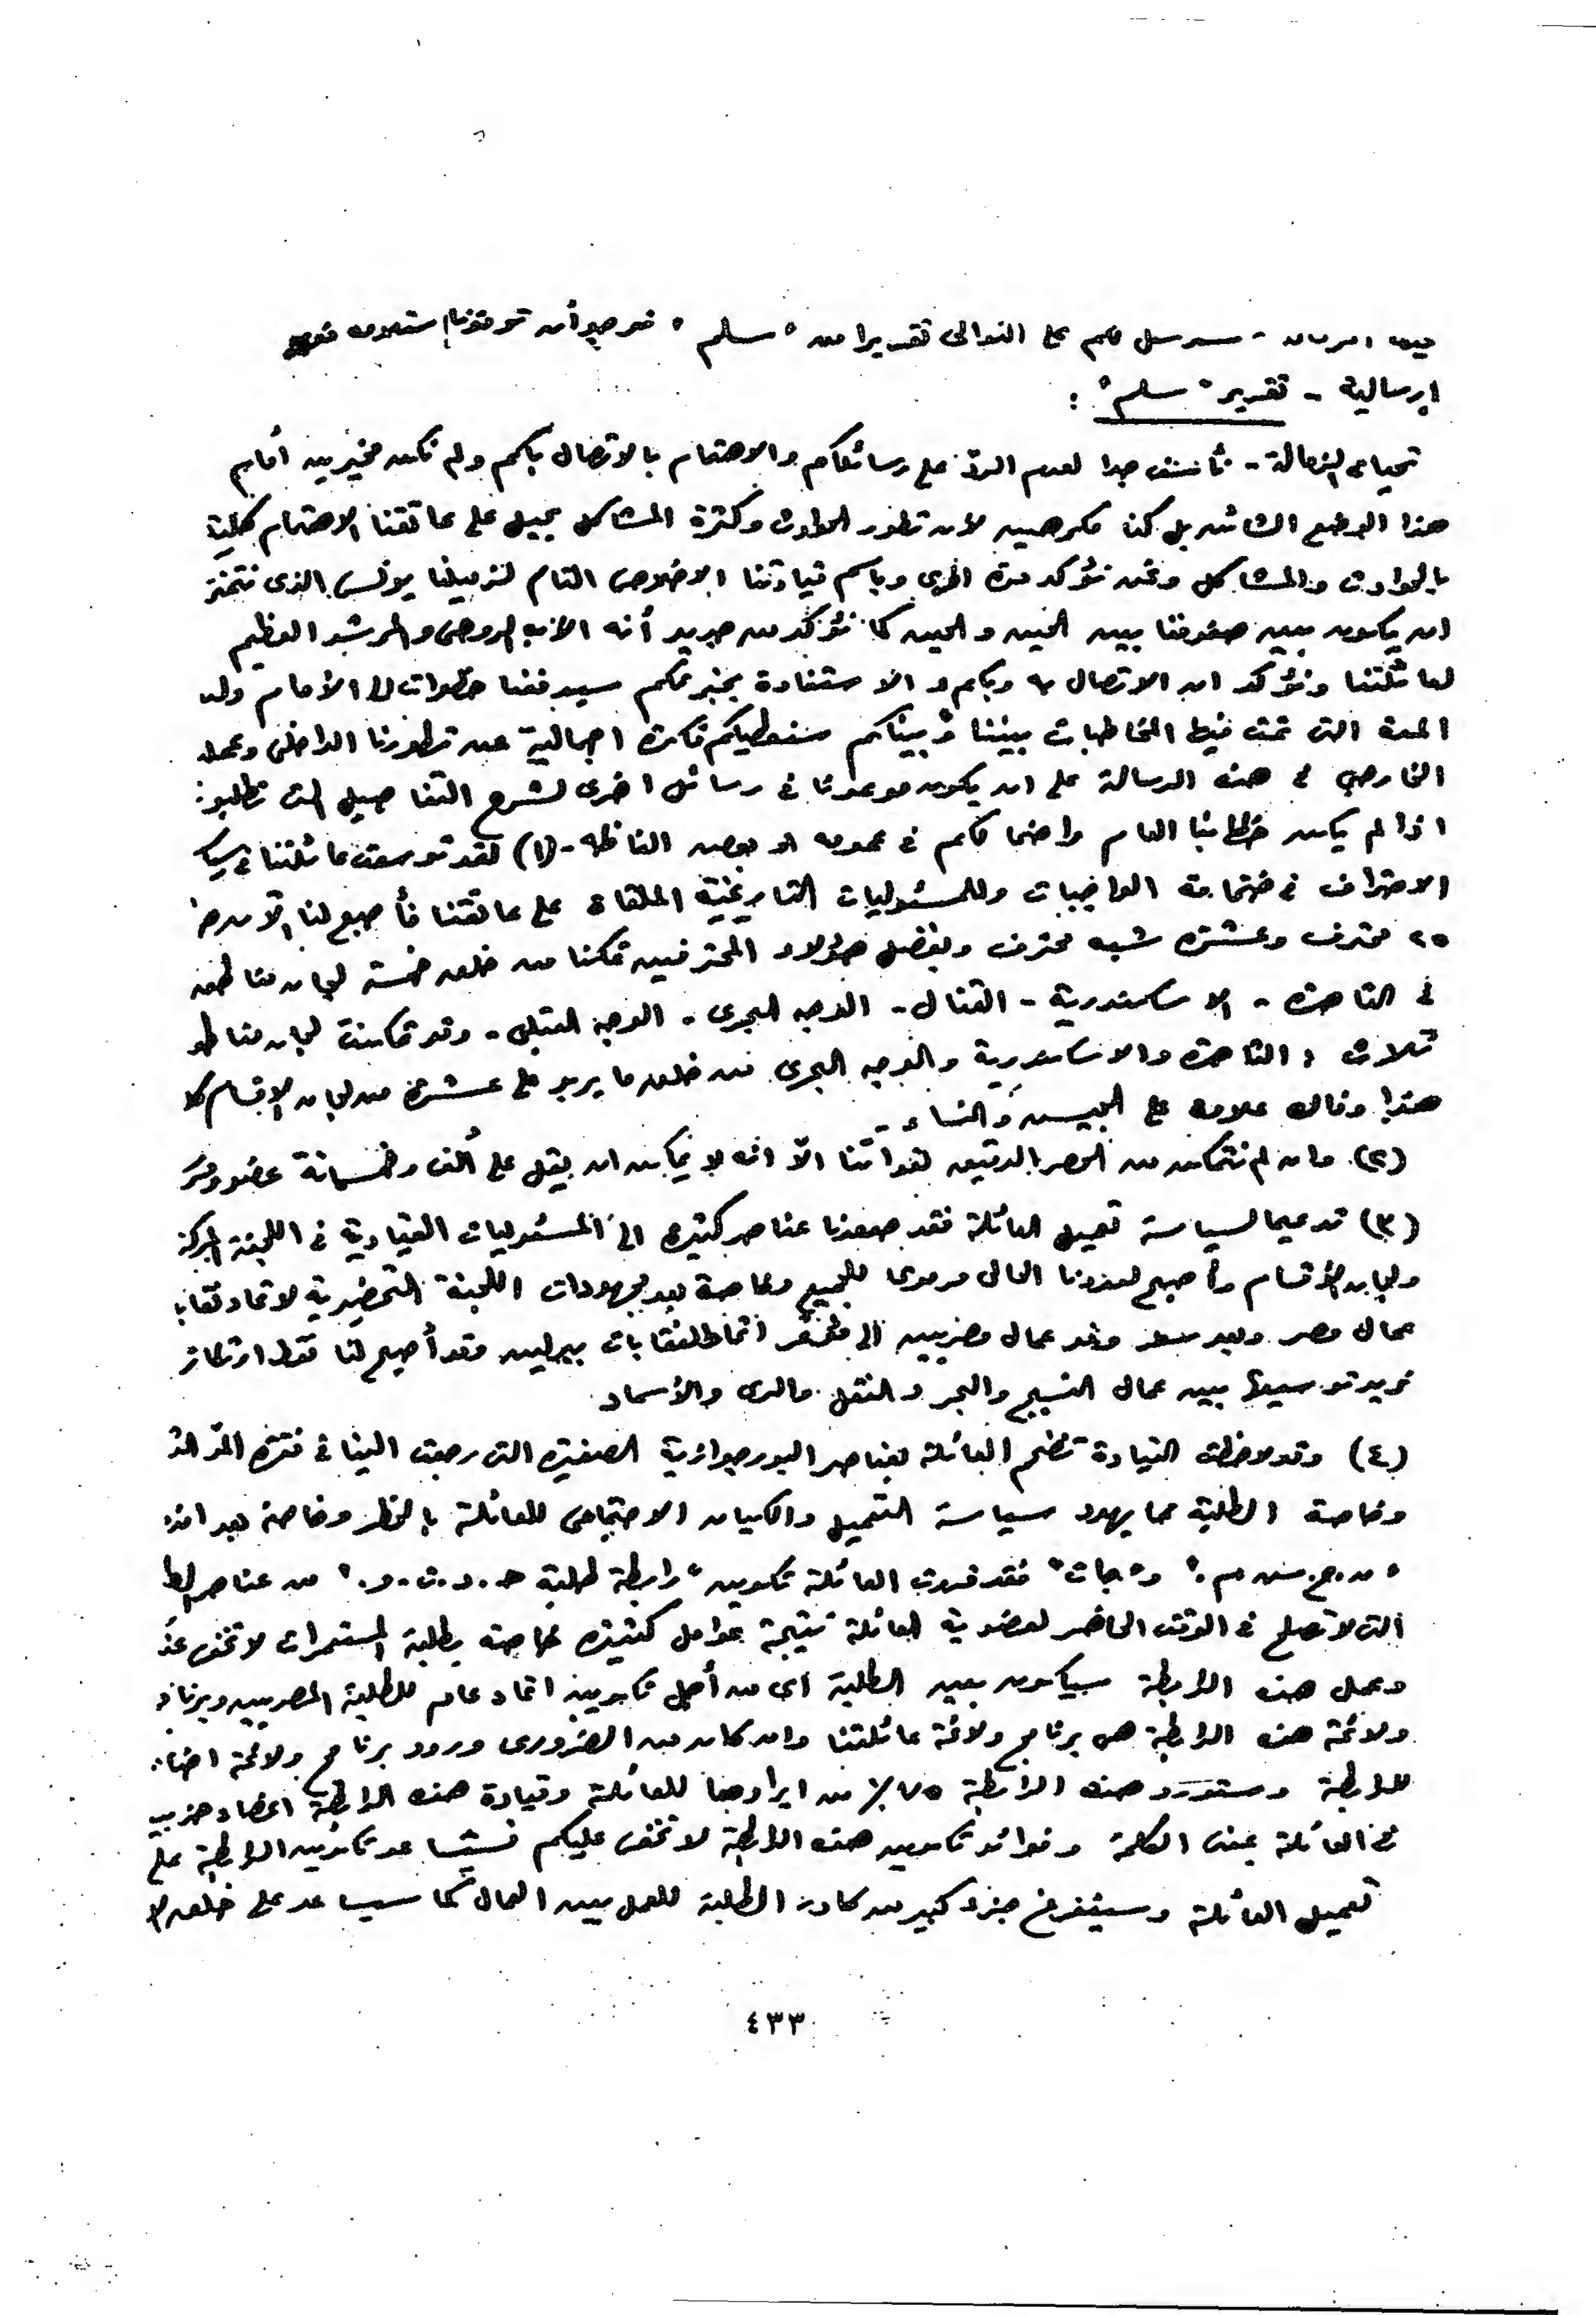 سنرسل لكم على التوالى تقريرا من " سلم " نرجو أن توقفونا باستلامه فور
إرسالية - تقرير " سلم " :
تحياتى الزمالة - نأسف جدا لعدم الردّ على رسائلكم والاهتمام بالاتصال بكم ولم نكن مخيّرين أمام
هذا الوضع الشاذ بل كنا مكرهين لأن تطور الحوادث وكثرة المشاكل يجيل على عاتقنا الاهتمام كلية
بالحوادث والمشاكل ونحن نؤكد مرة اخرى وباسم قيادتنا الإخلاص التام لزميلنا يونس الذى نتمنى
ان يكون بين صفوفنا بين الحين والحين كما نؤكد من جديد أنه الأب الروحى والمرشد العظيم
لعائلتنا ونؤكد ان الاتصال به وبكم والاستفادة بخبرتكم سيدفعنا خطوات الى الأمام ولد
المدة التى تمت فيها المخاطبات بيننا وبينكم سنعطيكم فكرة اجمالية عن تطورنا الداخلى وعملنا
الخارجى فى هذه الرسالة على ان يكون موعدنا فى رسائل اخرى لشرح التفاصيل التى تطلبو
اذا لم يكن خطابنا العام واضحا لكم فى عمومه او بعض الفاظه - (١) لقد توسعت عائلتنا فى سيا
الاحتراف فى ضخامة الواجبات والمسئوليات التاريخية الملقاة على عاتقنا فأصبح لنا الآن
٢٥ محترف وعشرة شبه محترف وبفضل هؤلاء المحترفين تمكنا من خلق خمسة لجان مناطق
فى القاهرة - الاسكندرية - القنال - الوجه البحرى - الوجه القبلى - وقد تمكنت لجان مناطق
ثلاث : القاهرة والاسكندرية والوجه البحرى من خلق ما يربو على عشرة من لجان الاقسام كل
هذا وذاك علاوة على الجيش والنساء -
(٢) وان لم نتمكن من الحصر الدقيق لقواتنا الاّ انه لا يمكن ان يقل على ألف وخمسمائة عضو ومر
(٣) تدعيما لسياسة تعميل العائلة فقد صعدنا عناصر كثيرة الى المسئوليات القيادية فى اللجنة المركز
ولجان الأقسام وأصبح لعددنا الحالى مرموقا للجميع وخاصة بعد مجهودات اللجنة التحضيرية لاتحاد نقابا
عمال مصر وبعد سفر وفد عمال مصريين الى مؤتمر اتحاد النقابات ببرلين وقد أصبح لنا نقط ارتكاز
نريد توسيعها بين عمال النسيج والبحر والنقل والرى والأسماد
(٤) وقد لاحظت القيادة تضخم العائلة بعناصر البورجوازية الصغيرة التى رجعت الينا فى فترة المدّ الثو
وخاصة الطلبة مما يهدد سياسة التعميل والكيان الاجتماعى للعائلة بالخطر وخاصة بعد
" م.ش.م. " و" جات " فقد قررت العائلة تكوين " رابطة طلبة ح.د.ت.و. " من عناصر الط
التى لا تصلح فى الوقت الحاضر لعضوية العائلة نتيجة عوامل كثيرة خاصة بطلبة المستعمرات لا تخفى عد
وعمل هذه الرابطة سيكون بين الطلبة اى من أجل تكوين اتحاد عام للطلبة المصريين وبرنا
ولائحة هذه الرابطة هى برنامج ولائحة عائلتنا وان كان من الضرورى ورود برنامج ولائحة
للرابطة وستورد هذه الرابطة ٧٥٪ من ايرادها للعائلة وقيادة هذه الرابطة اعضاء حزبي
فى العائلة بمعنى الكلمة وفوائد تكوين هذه الرابطة لا تخفى عليكم فسيساعد تكوين الرابطة على
تعميل العائلة وسيتفرغ جزء كبير من كادر الطلبة للعمل بين العمال كما سيساعد على خلق
٤٣٣